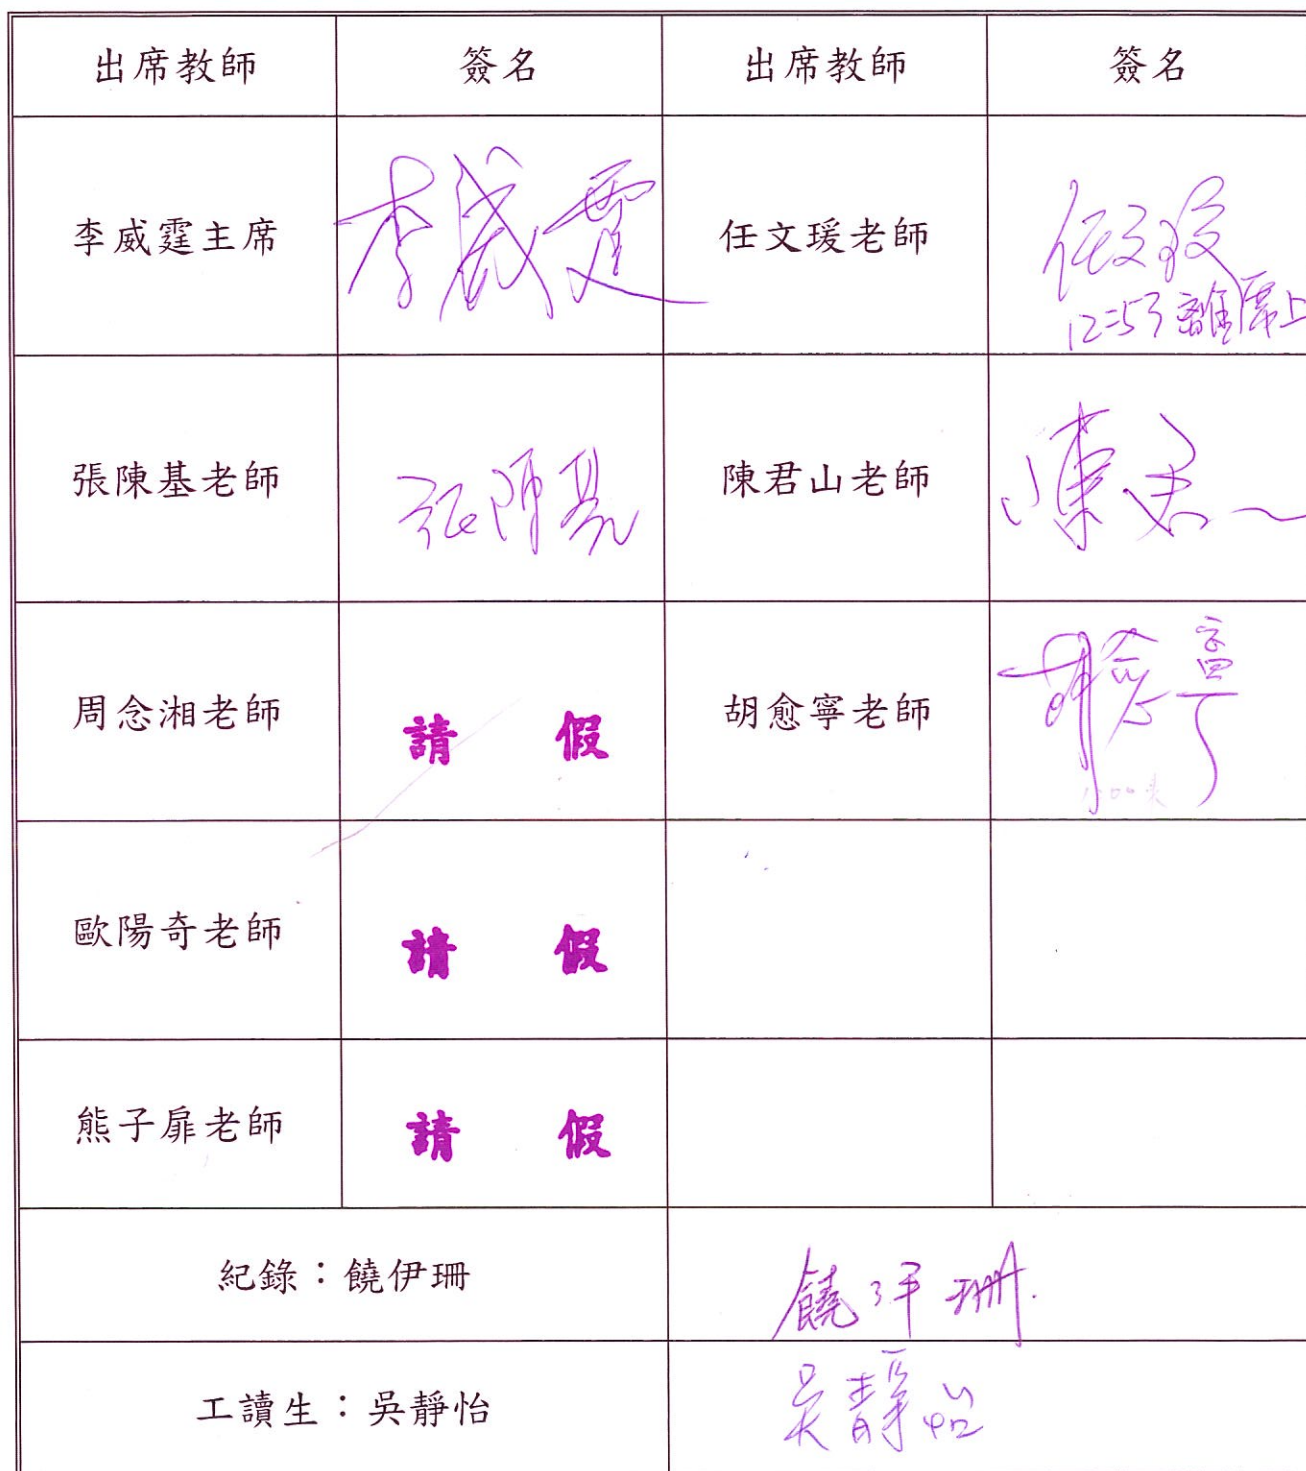 出席教師 簽名 出席教師 簽名
李威霆主席 李威霆 任文瑗老師 任文瑗
12:53 離席上
張陳基老師 張陳基 陳君山老師 陳君
周念湘老師 請 假 胡愈寧老師 胡愈寧
歐陽奇老師 請 假
熊子扉老師 請 假
紀錄：饒伊珊 饒伊珊
工讀生：吳靜怡 吳靜怡